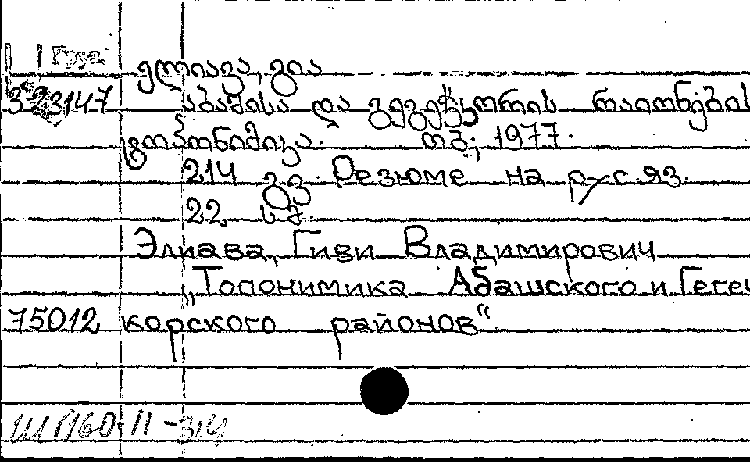 1 Груз.
ელიავა, გია
323147 აბაშისა და გეგეჭკორის რაიონების
ტოპონიმიკა. თბ., 1977.
214 გვ. Резюме на рус яз.
22 სმ.
Элиава, Гиви Владимирович
„Топонимика Абашского и Геге
75012 корского районов“